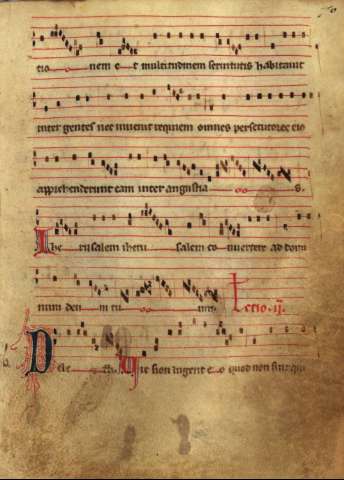 tio nem et multitudinem seruitutis habitauit
inter gentes nec inuenit requiem omnes persecutores eio
apprehenderunt eam inter angustia s.
Ihe rusalem iheru salem co uertere ad domi
num deu m tu um. Lectio .ii.
Dele th. Vie sion lugent eo quod non sint qui